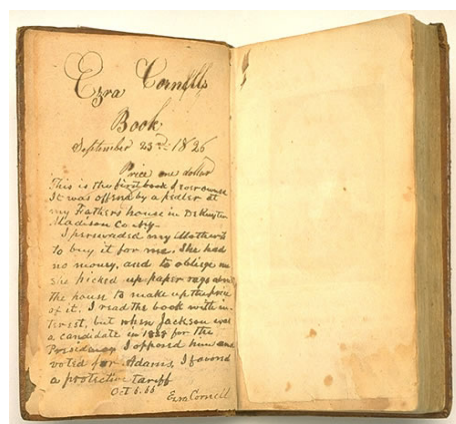 Ezra Cornells
Book
September 23rd 1826
Price one dollar
This is the first book I ever owned
It was offered by a pedler at
my Fathers house in DeRuyter
Madison Co Ny-
I perswaded my Mother
to buy it for me. She had
no money, and to oblige me
she picked up paper rags about
the house to make up the price
of it. I read the book with in-
terest, but when Jackson was
a candidate in 1828 for the
Presidency I opposed him and
voted for Adams, I favored
a protective tariff
Oct 5.
Ezra Cornell